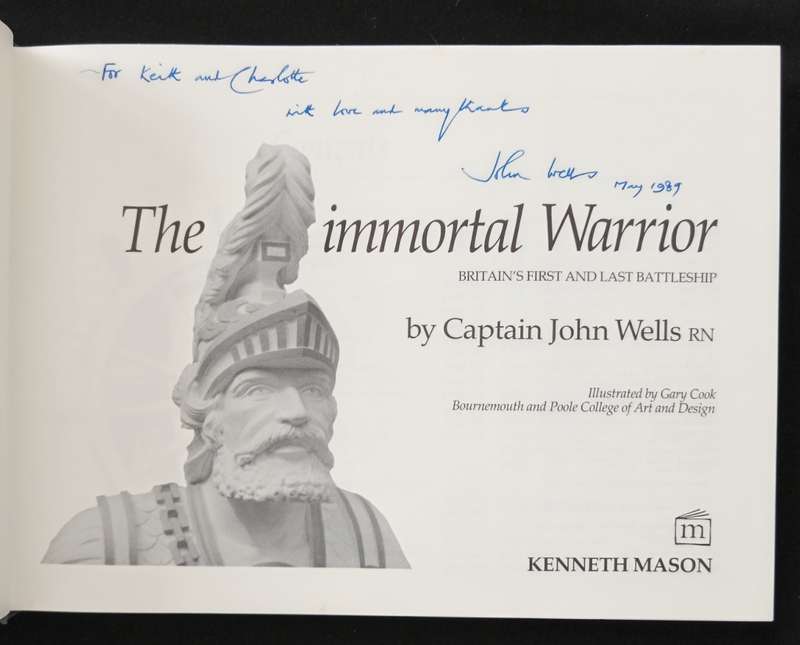 For Keith and Charlotte
with love and many thanks
John Wells May 1989
The immortal Warrior
BRITAIN'S FIRST AND LAST BATTLESHIP
by Captain John Wells RN
Illustrated by Gary Cook
Bournemouth and Poole College of Art and Design
m
KENNETH MASON